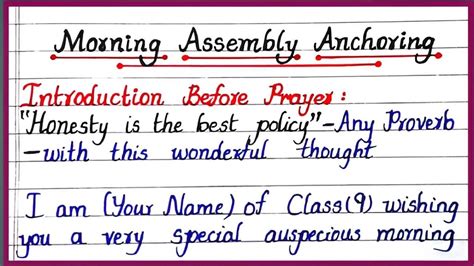 Morning Assembly Anchoring
Introduction Before Prayer:
"Honesty is the best policy"-Any Proverb
-with this wonderful thought
I am (Your Name) of Class(9) wishing
you a very special auspecious morning